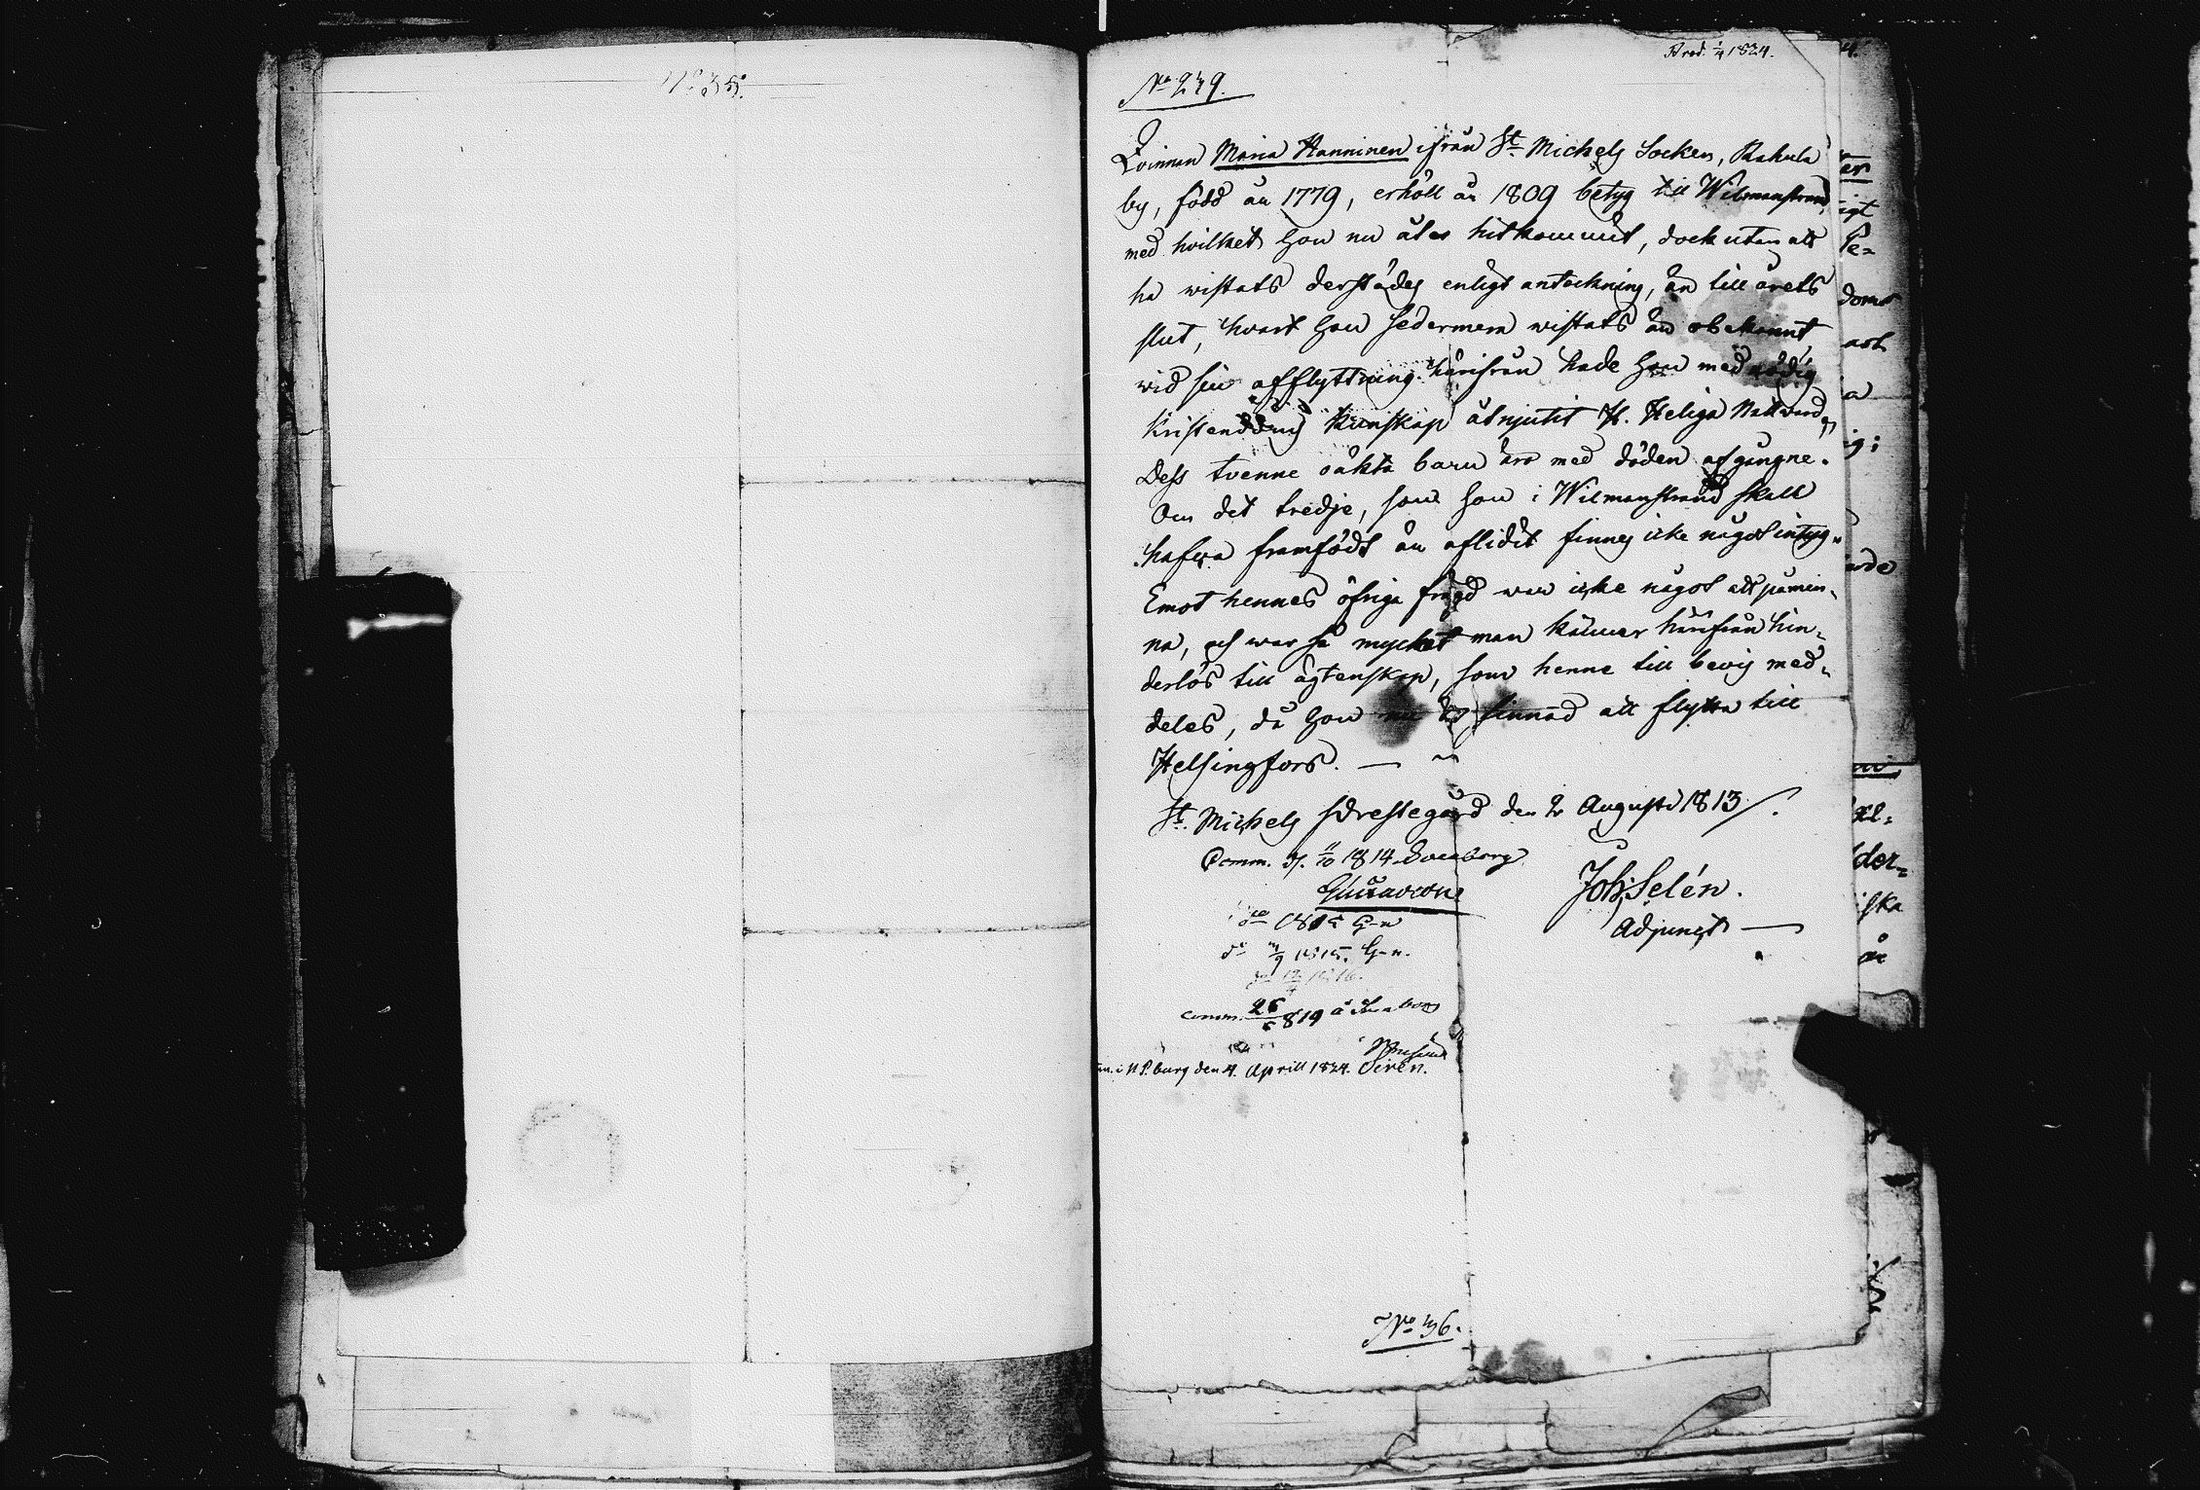 N:o 35.
Pred. 1/4 1824.
No 249.
Qvinnan Maria Hanninen ifrån St. Michels Socken, Rahula
by, född år 1779, erhöll år 1809 betyg till Wilmanstrand,
med hvilket hon nu åter hitkommit, dock utan att
ha wistats derstädes enligt anteckning, än till årets
slut, hvart hon sedermera wistats är obekant,
wid sin afflyttning härifrån hade hon med nödig
Kristendoms kunskap åtnjutit H. Heliga Nattvard,
Dess tvenne oäkta barn äro med döden afgångne.
Om det tredje, som hon i Wilmanstrand skall
hafva framfödt är aflidit finnes icke något intyg.
Emot hennes öfriga frägd war icke något att påmin-
na, och war så mycket man känner härifrån hin-
derlös till ägtenskap, som henne till bevis med-
deles, då hon nu är sinnad att flytta till
Helsingfors. —
St. Michels Prestegård den 2 Augusti 1813.
Comm. d. 11/10 1814 Sveaborg
Joh. Selén.
Adjunct
do 1815 G-n
do 1815. G-n.
do 1816.
Comm. 26/6 819 å Sveaborg
den 4. Aprill 1824. Sirén.
No 36.